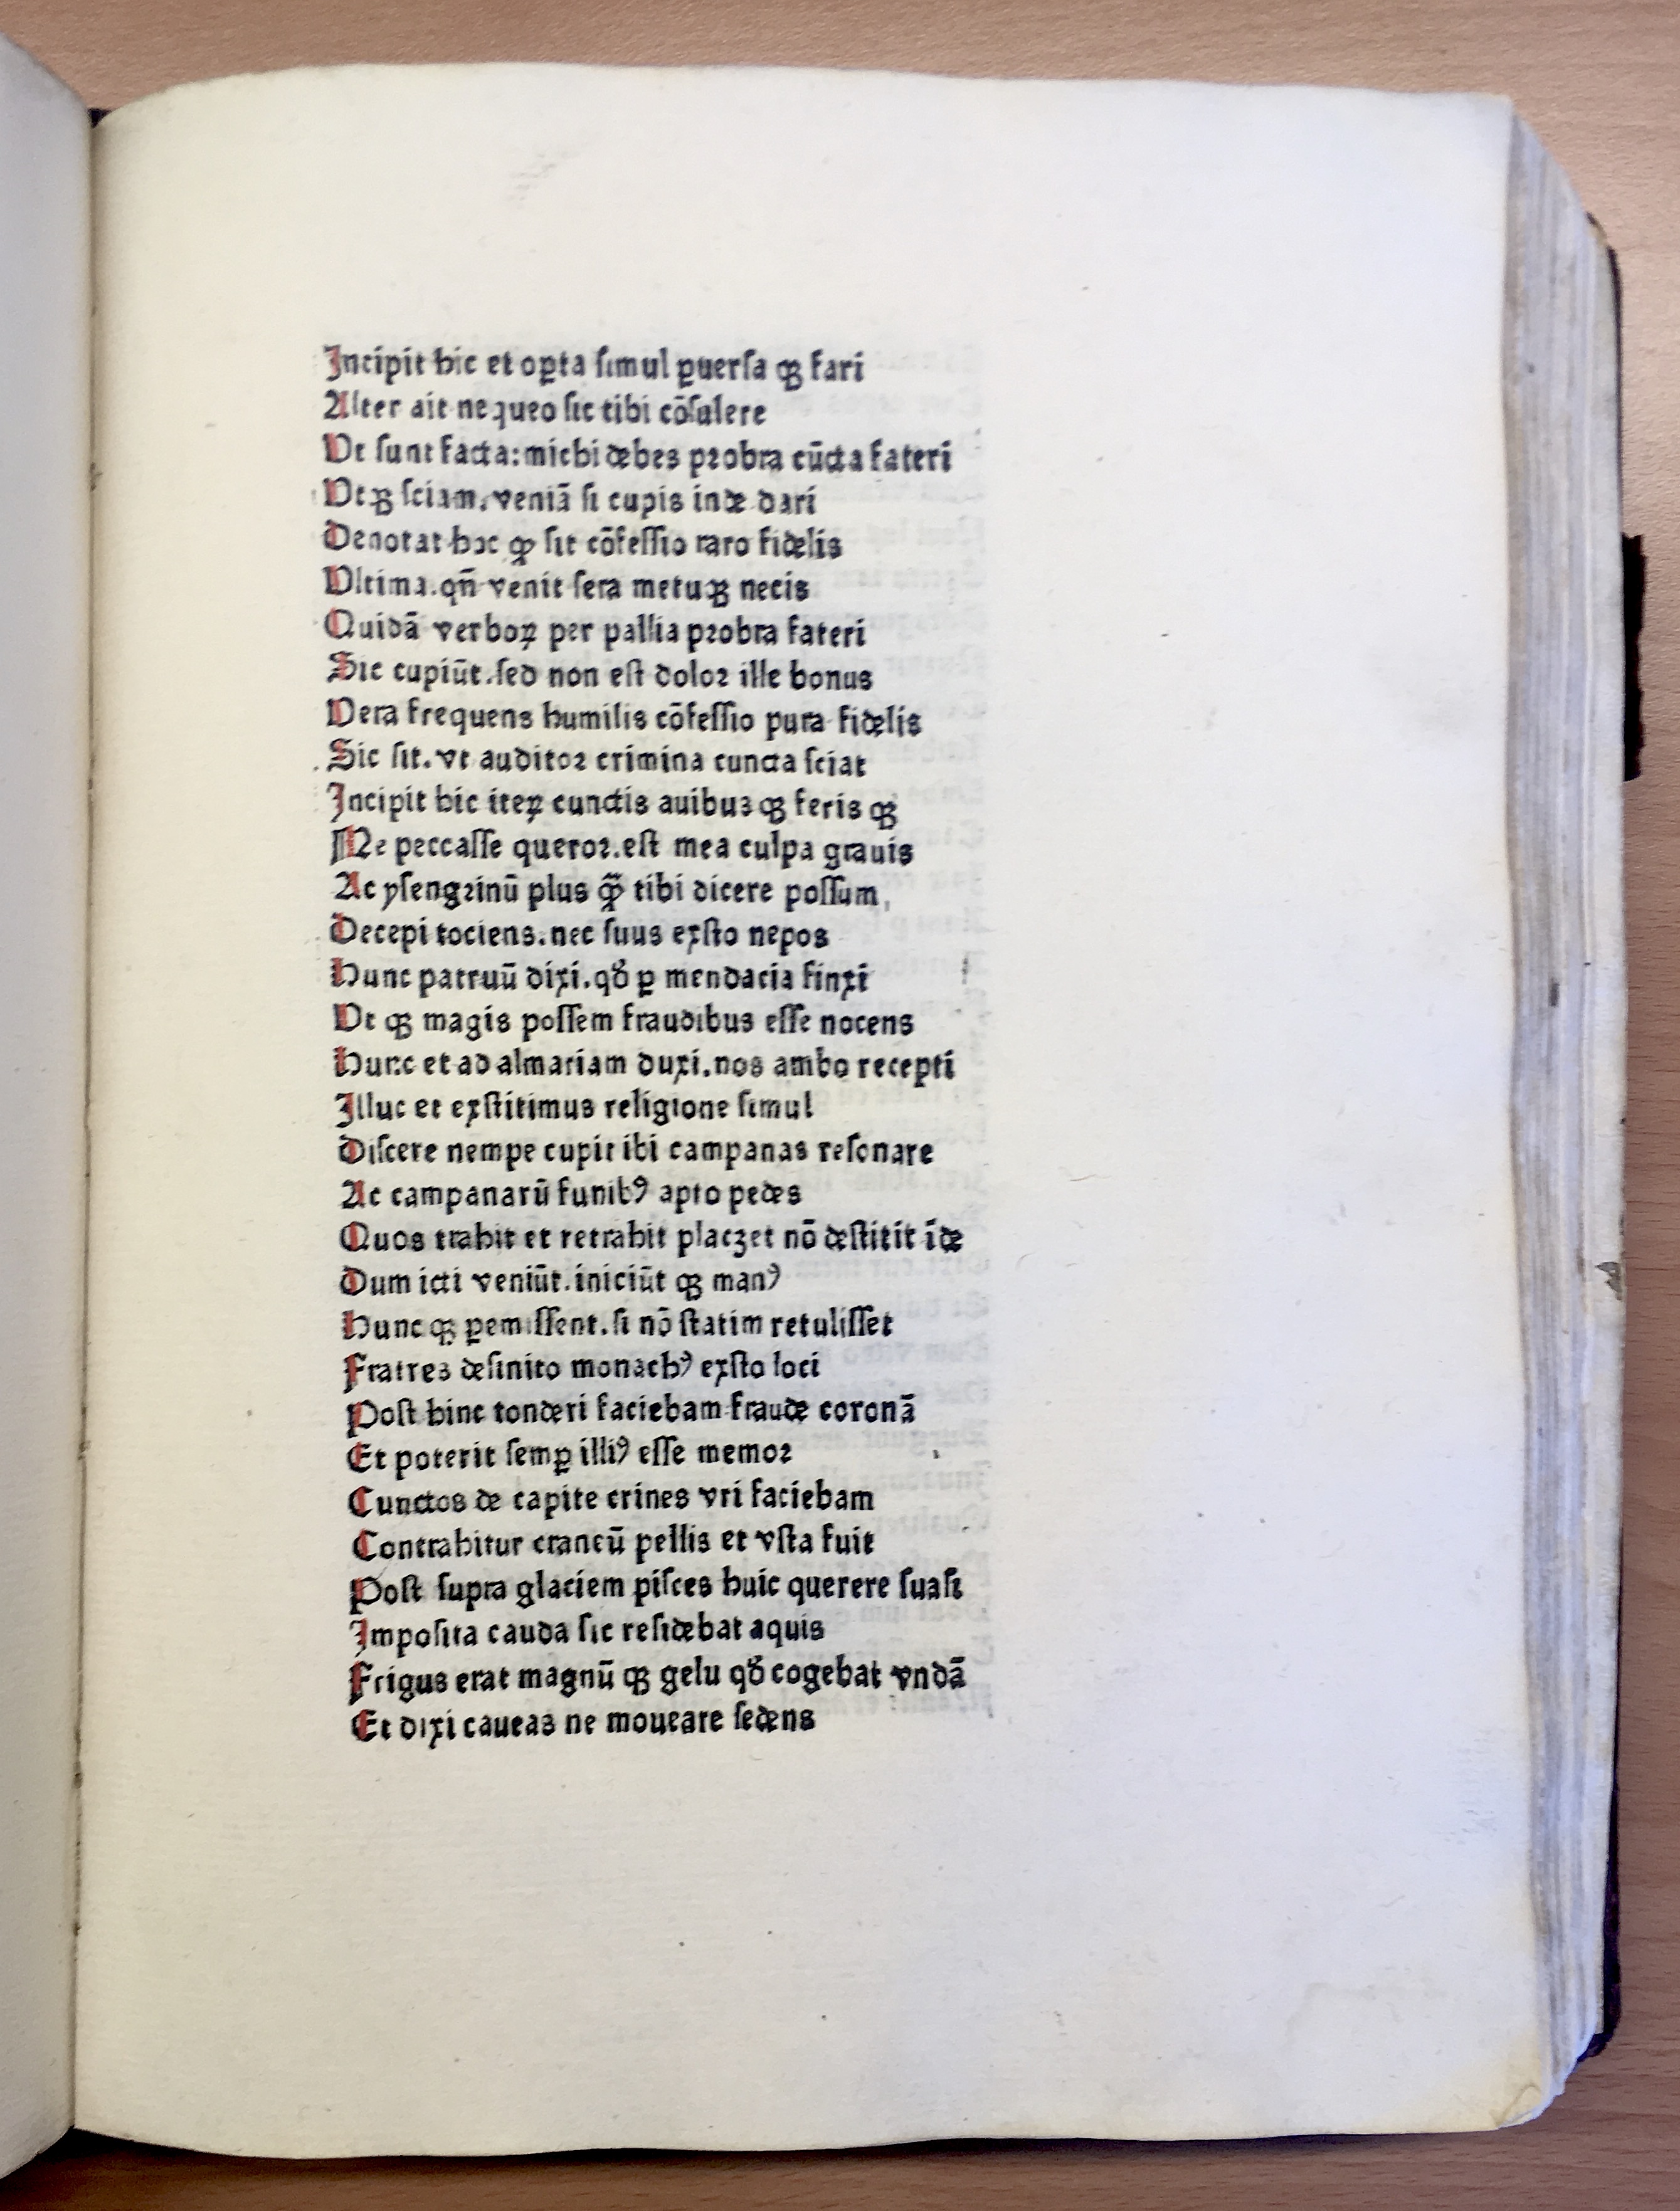 Incipit hic et oꝑta simul ꝑuersa qꝫ fari
Alter ait nequeo sic tibi cōsulere
Vt sunt facta: michi debes probra cūcta fateri
Vtqꝫ sciam. veniā si cupis inde dari
Denotat hoc ꝙ sit cōfessio raro fidelis
Vltima. qn̄ venit sera metuqꝫ necis
Quidā verboꝝ per pallia probra fateri
Sic cupiūt. sed non est dolor ille bonus
Vera frequens humilis cōfessio pura fidelis
Sic sit. vt auditor crimina cuncta sciat
Incipit hic iteꝝ cunctis auibus qꝫ feris qꝫ
Me peccasse queror. est mea culpa grauis
Ac ysengrinū plus ꝙ̄ tibi dicere possum
Decepi tociens. nec suus exsto nepos
Hunc patruū dixi. qđ ꝑ mendacia finxi
Vt qꝫ magis possem fraudibus esse nocens
Hunc et ad almariam duxi. nos ambo recepti
Illuc et exstitimus religione simul
Discere nempe cupit ibi campanas resonare
Ac campanarū funibꝰ apto pedes
Quos trahit et retrahit placzet nō destitit īde
Dum icti veniūt. iniciūt qꝫ manꝰ
Hunc qꝫ ꝑemissent. si nō statim retulisset
Fratres desinito monachꝰ exsto loci
Post hinc tonderi faciebam fraude coronā
Et poterit semꝑ illiꝰ esse memor
Cunctos de capite crines vri faciebam
Contrahitur craneū pellis et vsta fuit
Post supra glaciem pisces huic querere suasi
Imposita cauda sic residebat aquis
Frigus erat magnū qꝫ gelu qđ cogebat vndā
Et dixi caueas ne moueare sedens